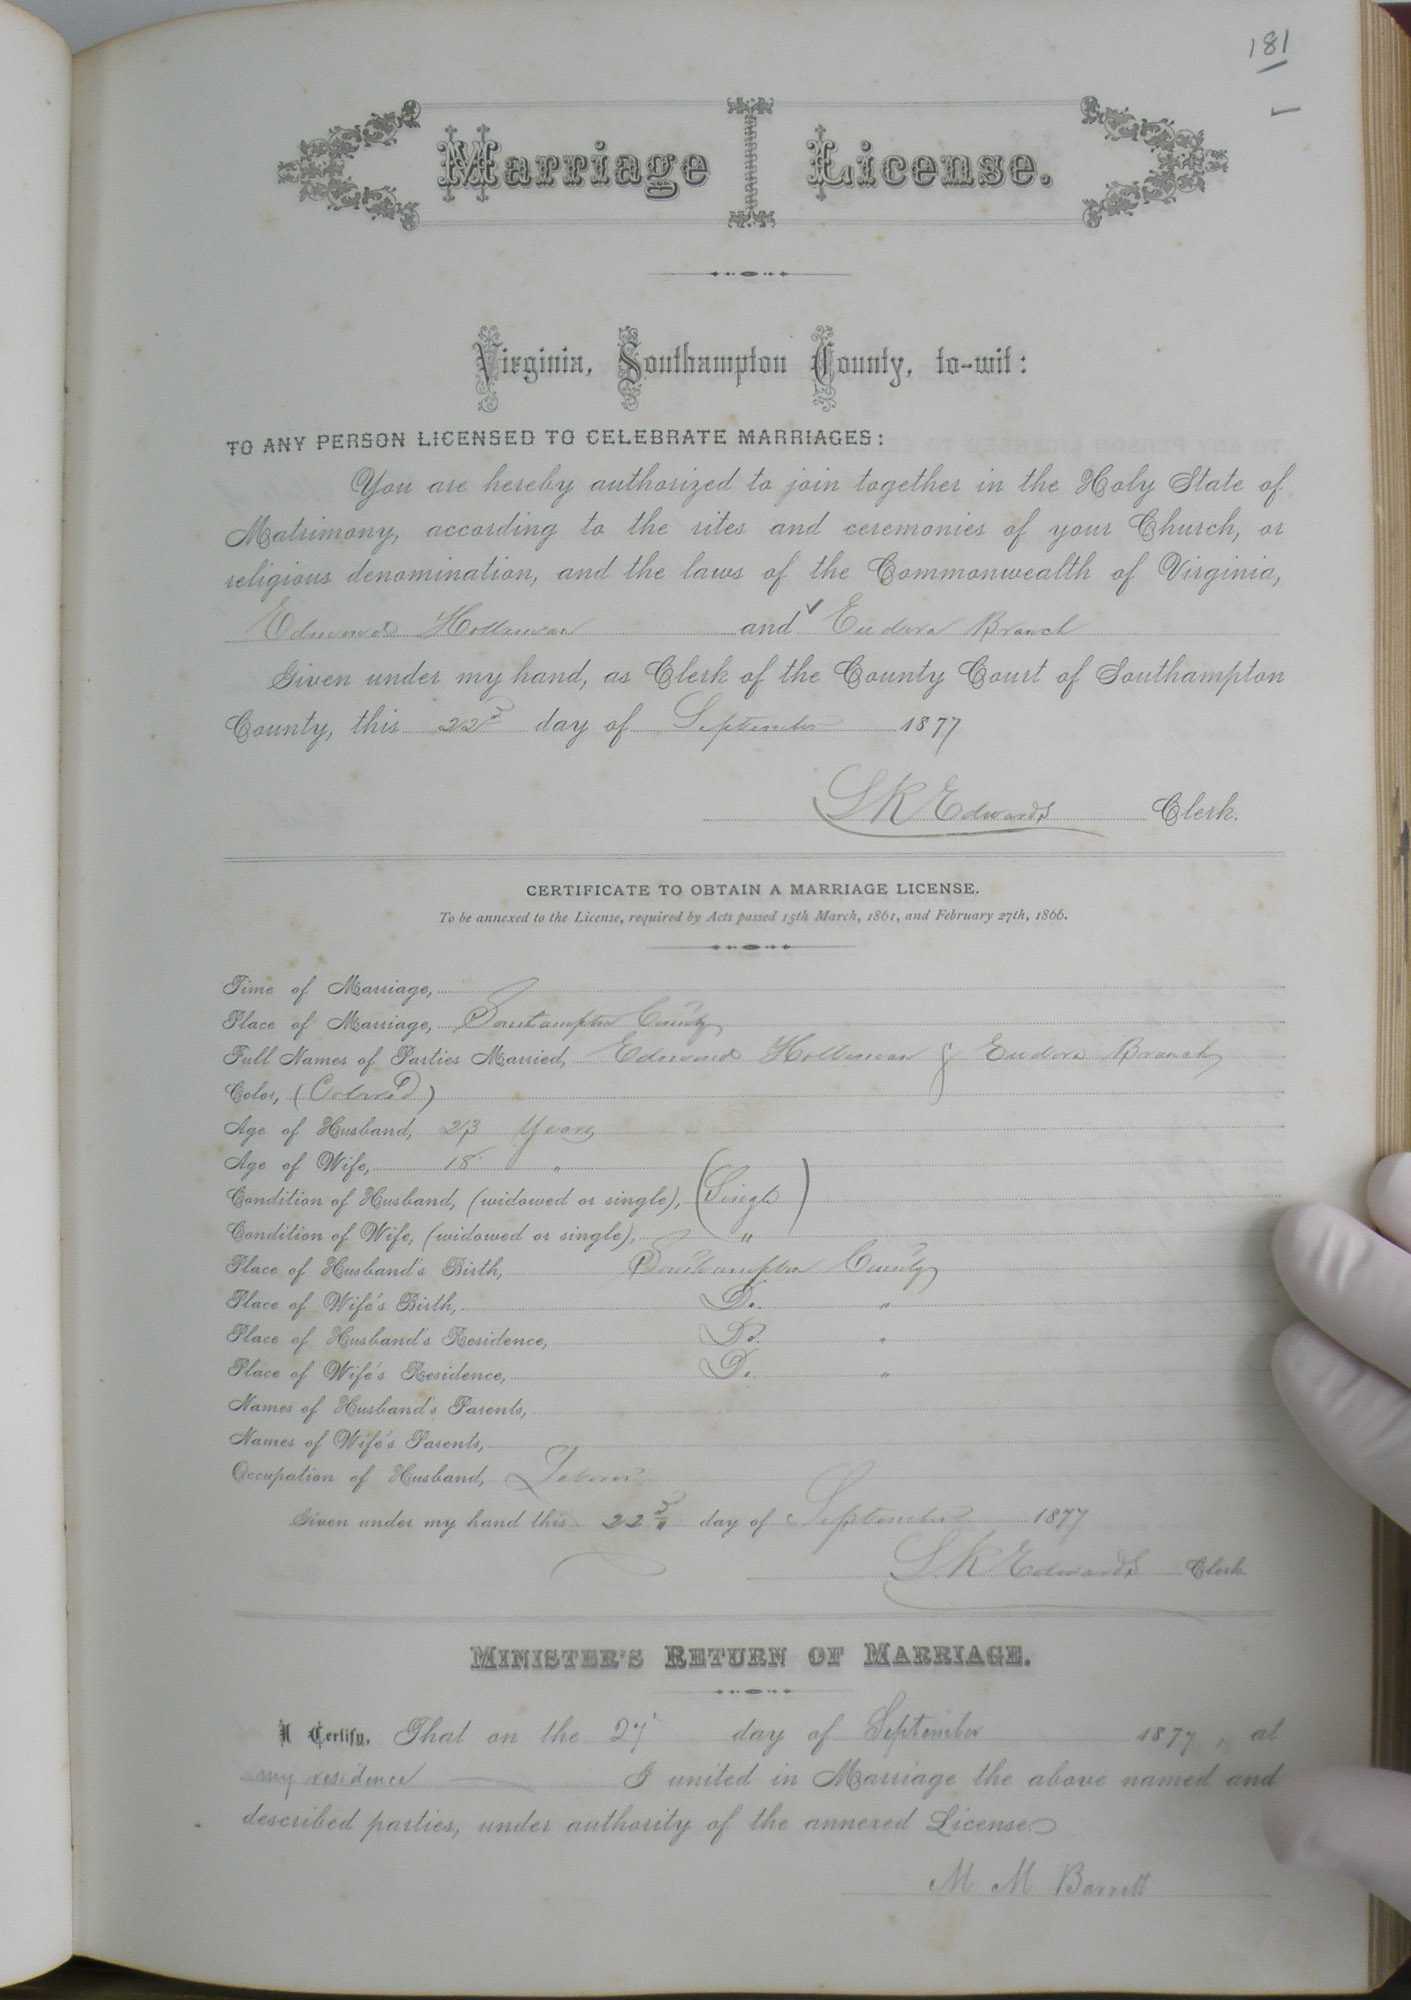 181
Marriage License.
Virginia, Southampton County, to-wit:
TO ANY PERSON LICENSED TO CELEBRATE MARRIAGES:
You are hereby authorized to join together in the Holy State of
Matrimony, according to the rites and ceremonies of your Church, or
religious denomination, and the laws of the Commonwealth of Virginia,
Edmund Holliman and Eudora Branch
Given under my hand, as Clerk of the County Court of Southampton
County, this 22d day of September 1877
L R Edwards Clerk.
CERTIFICATE TO OBTAIN A MARRIAGE LICENSE.
To be annexed to the License, required by Acts passed 15th March, 1861, and February 27th, 1866.
Time of Marriage,
Place of Marriage, Southampton County
Full Names of Parties Married, Edmund Holliman & Eudora Branch
Color, (Colored)
Age of Husband, 23 Years
Age of Wife, 18 "
Condition of Husband, (widowed or single), (Single)
Condition of Wife, (widowed or single), "
Place of Husband's Birth, Southampton County
Place of Wife's Birth, Do. "
Place of Husband's Residence, Do. "
Place of Wife's Residence, Do. "
Names of Husband's Parents,
Names of Wife's Parents,
Occupation of Husband, Laborer
Given under my hand this 22d day of September 1877
L. R Edwards Clerk
MINISTER'S RETURN OF MARRIAGE.
I Certify, That on the 27 day of September 1877, at
my residence I united in Marriage the above named and
described parties, under authority of the annexed License
M M Barrett